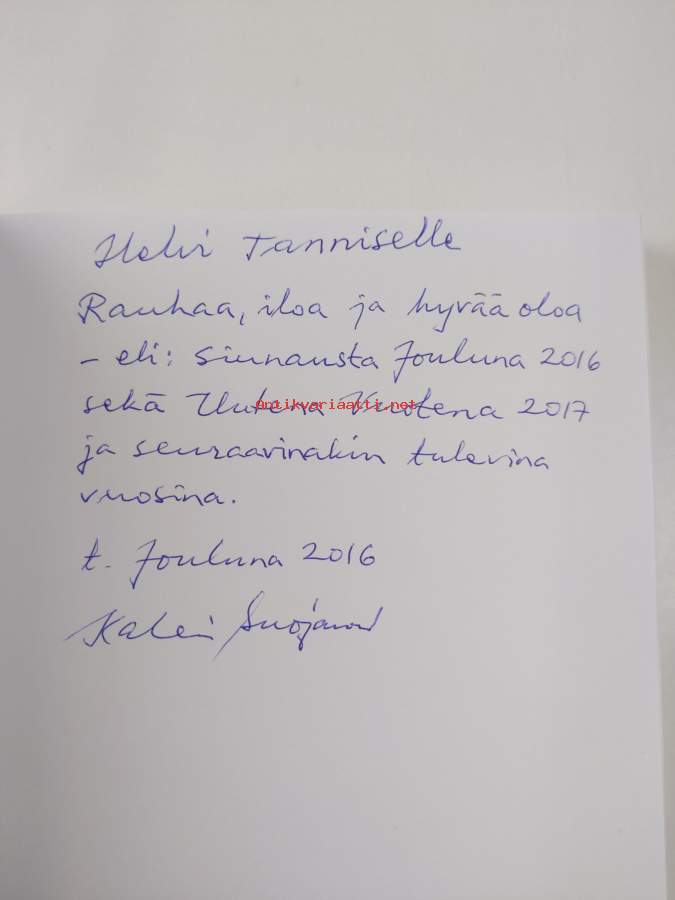 Helvi Tanniselle
Rauhaa, iloa ja hyvää oloa
- eli: siunausta Jouluna 2016
sekä Uutena Vuotena 2017
Antikvariaatti.net
ja seuraavinakin tulevina
vuosina.
t. Jouluna 2016